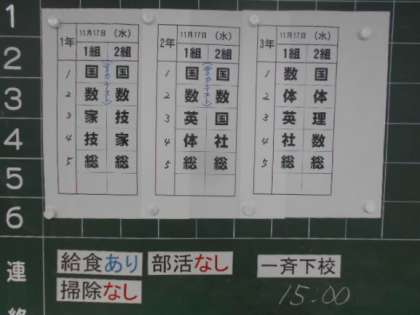 1
2
3
4
5
6
連
1年 11月17日 (水)
1組 2組
1 国 国
2 数 数
3 家 技
4 技 家
5 総 総
2年 11月17日 (水)
1組 2組
1 国 国
2 数 数
3 英 国
4 体 社
5 総 総
3年 11月17日 (水)
1組 2組
1 数 国
2 体 体
3 英 理
4 社 数
5 総 総
給食あり 部活なし 一斉下校
掃除なし 15:00